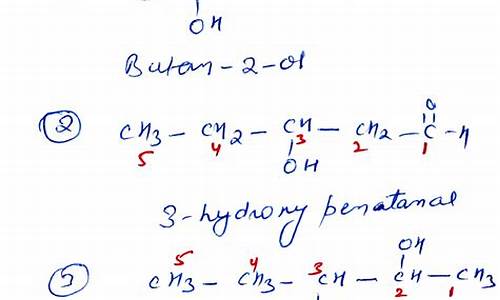 OH
Butan-2-ol
O
② CH3 - CH2 - CH - CH2 - C - H
5 4 3 2 1
OH
3-hydroxy penatanal
OH
③ CH3 - CH3 - CH - CH - CH3
5 4 3 2 1